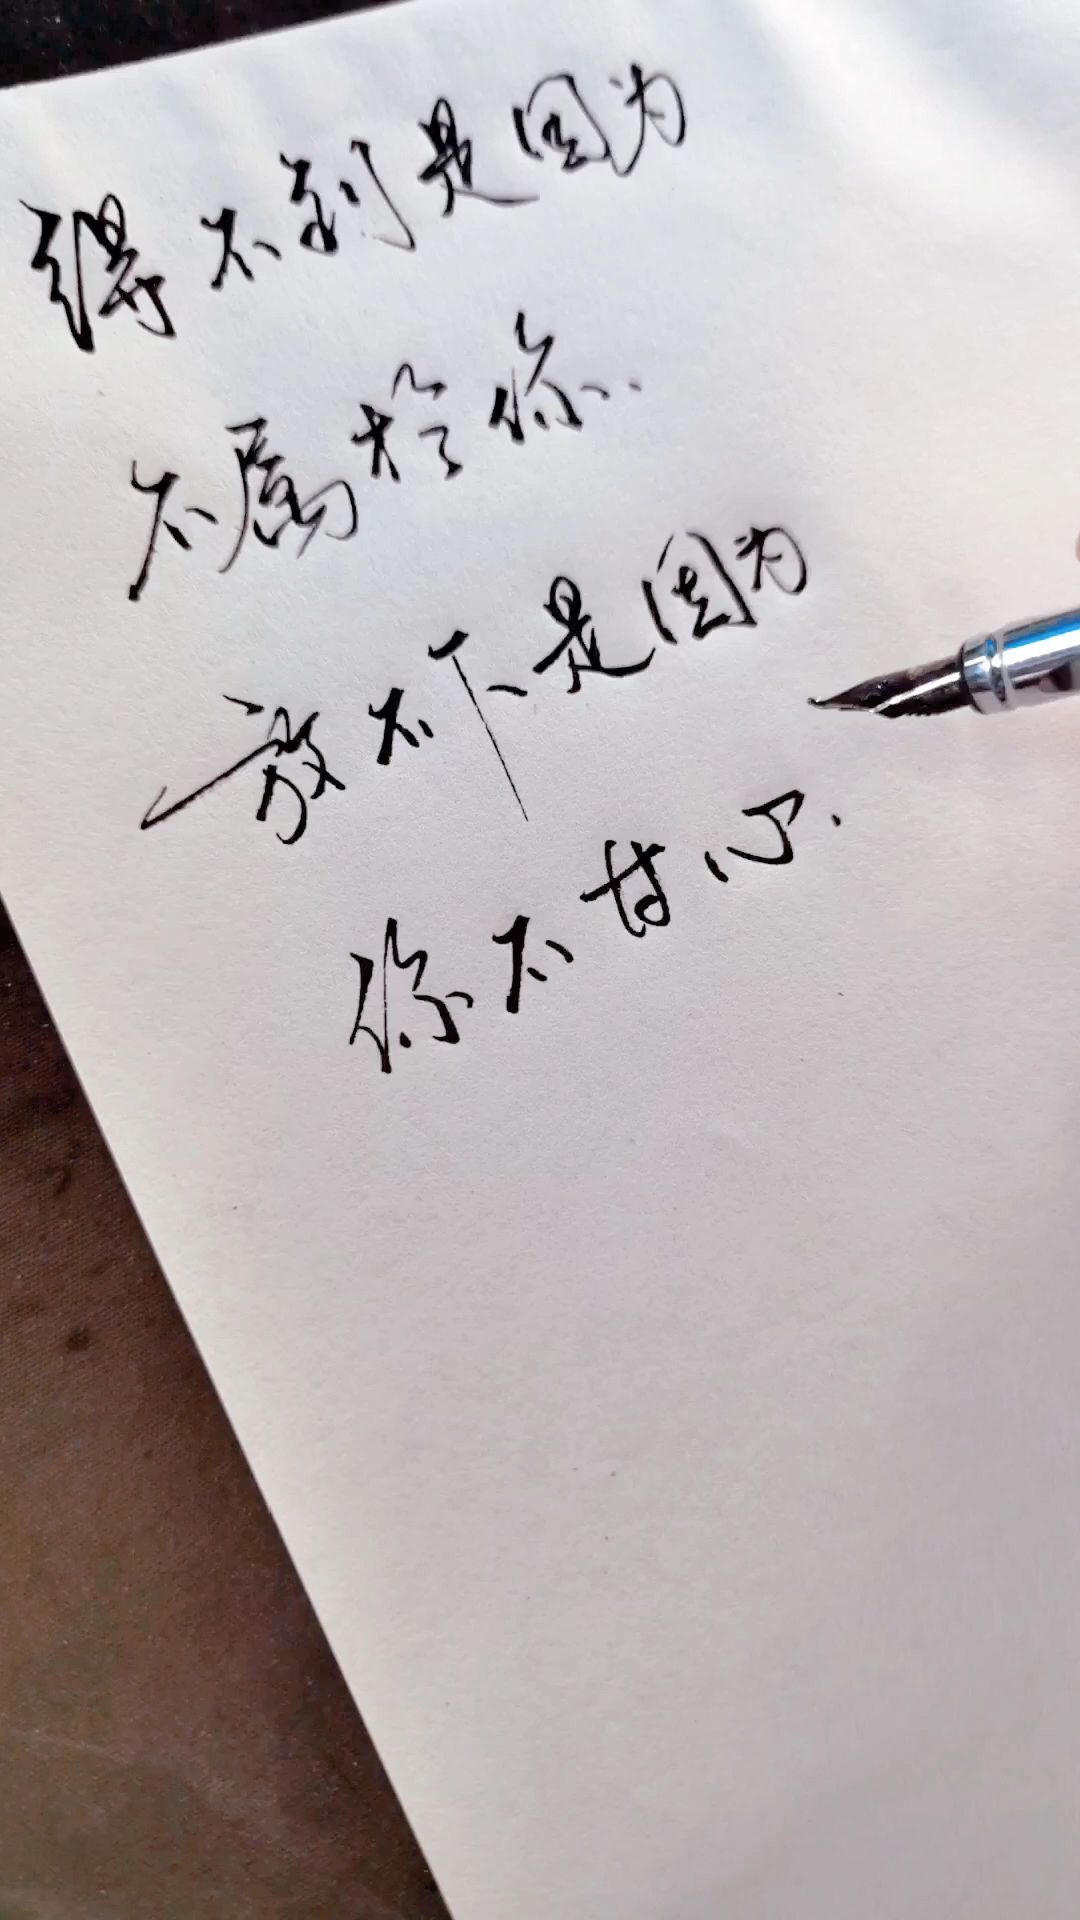 得不到是因为
不属於你.
放不下是因为
你不甘心.